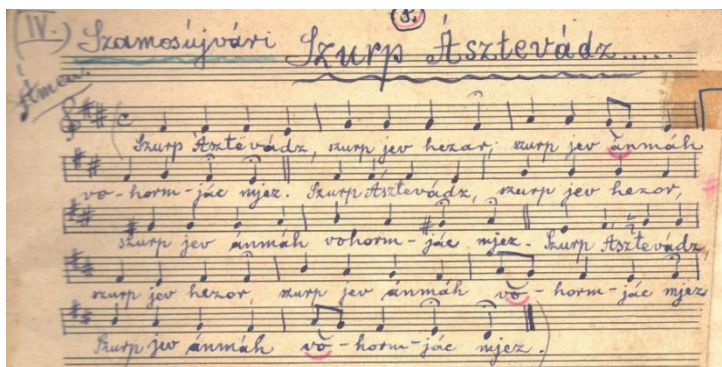 (8.)
IV.) Szamosújvári Szurp Ásztevádz.....
Ámen.
Szurp Ásztevádz, szurp jev hezar; szurp jev ánmáh
vo-horm-jác mjez. Szurp Ásztevádz, szurp jev hezor,
szurp jev ánmáh vohorm-jác mjez. Szurp Ásztevádz,
szurp jev hezor, szurp jev ánmáh vo-horm-jác mjez
Szurp jev ánmáh vo-horm-jác mjez.)